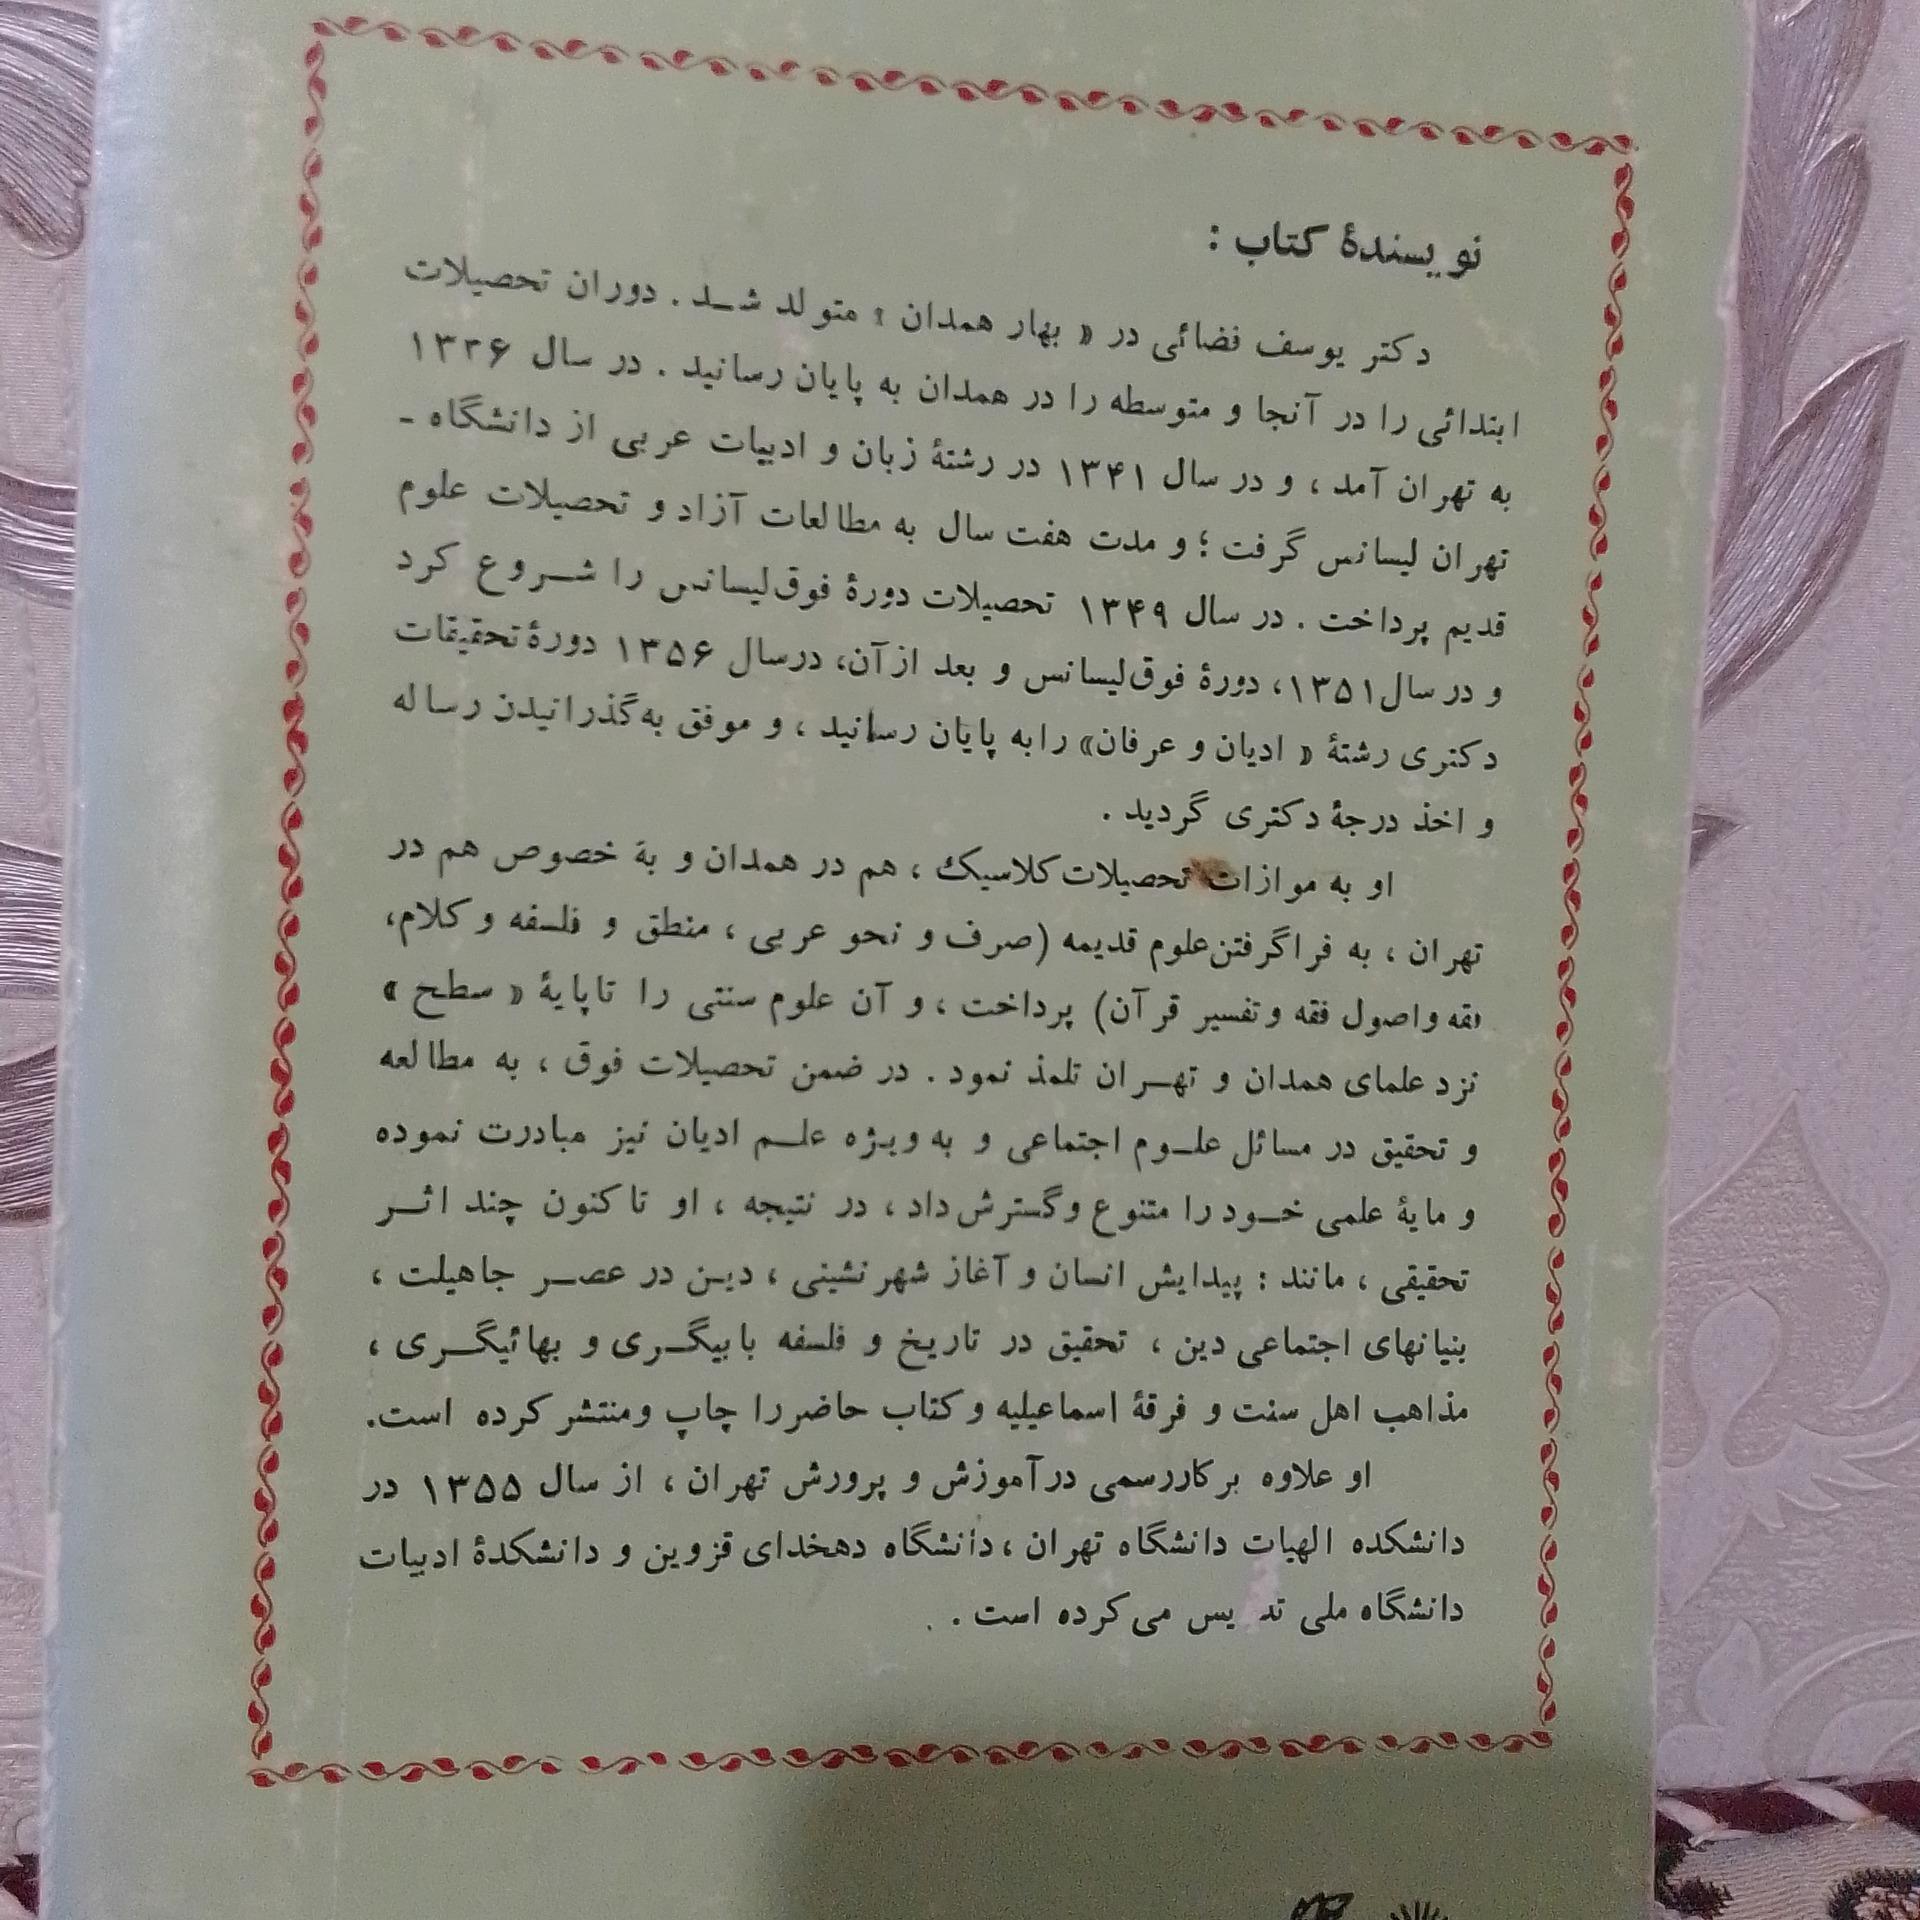 نویسندهٔ کتاب :
دکتر یوسف فضائی در « بهار همدان » متولد شـد . دوران تحصیلات
ابتدائی را در آنجا و متوسطه را در همدان به پایان رسانید . در سال ۱۳۳۶
به تهران آمد ، و در سال ۱۳۴۱ در رشتهٔ زبان و ادبیات عربی از دانشگاه -
تهران لیسانس گرفت ؛ و مدت هفت سال به مطالعات آزاد و تحصیلات علوم
قدیم پرداخت . در سال ۱۳۴۹ تحصیلات دورهٔ فوق‌لیسانس را شـروع کرد
و در سال ۱۳۵۱، دورهٔ فوق‌لیسانس و بعد از آن، درسال ۱۳۵۶ دورهٔ تحقیقات
دکتری رشتهٔ « ادیان و عرفان» را به پایان رسانید ، و موفق به گذرانیدن رساله
و اخذ درجهٔ دکتری گردید .
او به موازات تحصیلات کلاسیک ، هم در همدان و به خصوص هم در
تهران ، به فراگرفتن علوم قدیمه (صرف و نحو عربی ، منطق و فلسفه و کلام،
فقه و اصول فقه و تفسیر قرآن) پرداخت ، و آن علوم سنتی را تا پایهٔ « سطح »
نزد علمای همدان و تهـران تلمذ نمود . در ضمن تحصیلات فوق ، به مطالعه
و تحقیق در مسائل علـوم اجتماعی و به ویژه علـم ادیان نیز مبادرت نموده
و مایهٔ علمی خـود را متنوع و گسترش داد ، در نتیجه ، او تا کنون چند اثـر
تحقیقی ، مانند : پیدایش انسان و آغاز شهر نشینی ، دیـن در عصـر جاهیلت ،
بنیانهای اجتماعی دین ، تحقیق در تاریخ و فلسفه بابیگـری و بهائیگـری ،
مذاهب اهل سنت و فرقهٔ اسماعیلیه و کتاب حاضر را چاپ و منتشر کرده است.
او علاوه بر کاررسمی در آموزش و پرورش تهران ، از سال ۱۳۵۵ در
دانشکده الهیات دانشگاه تهران ، دانشگاه دهخدای قزوین و دانشکدهٔ ادبیات
دانشگاه ملی تد یس می‌کرده است .